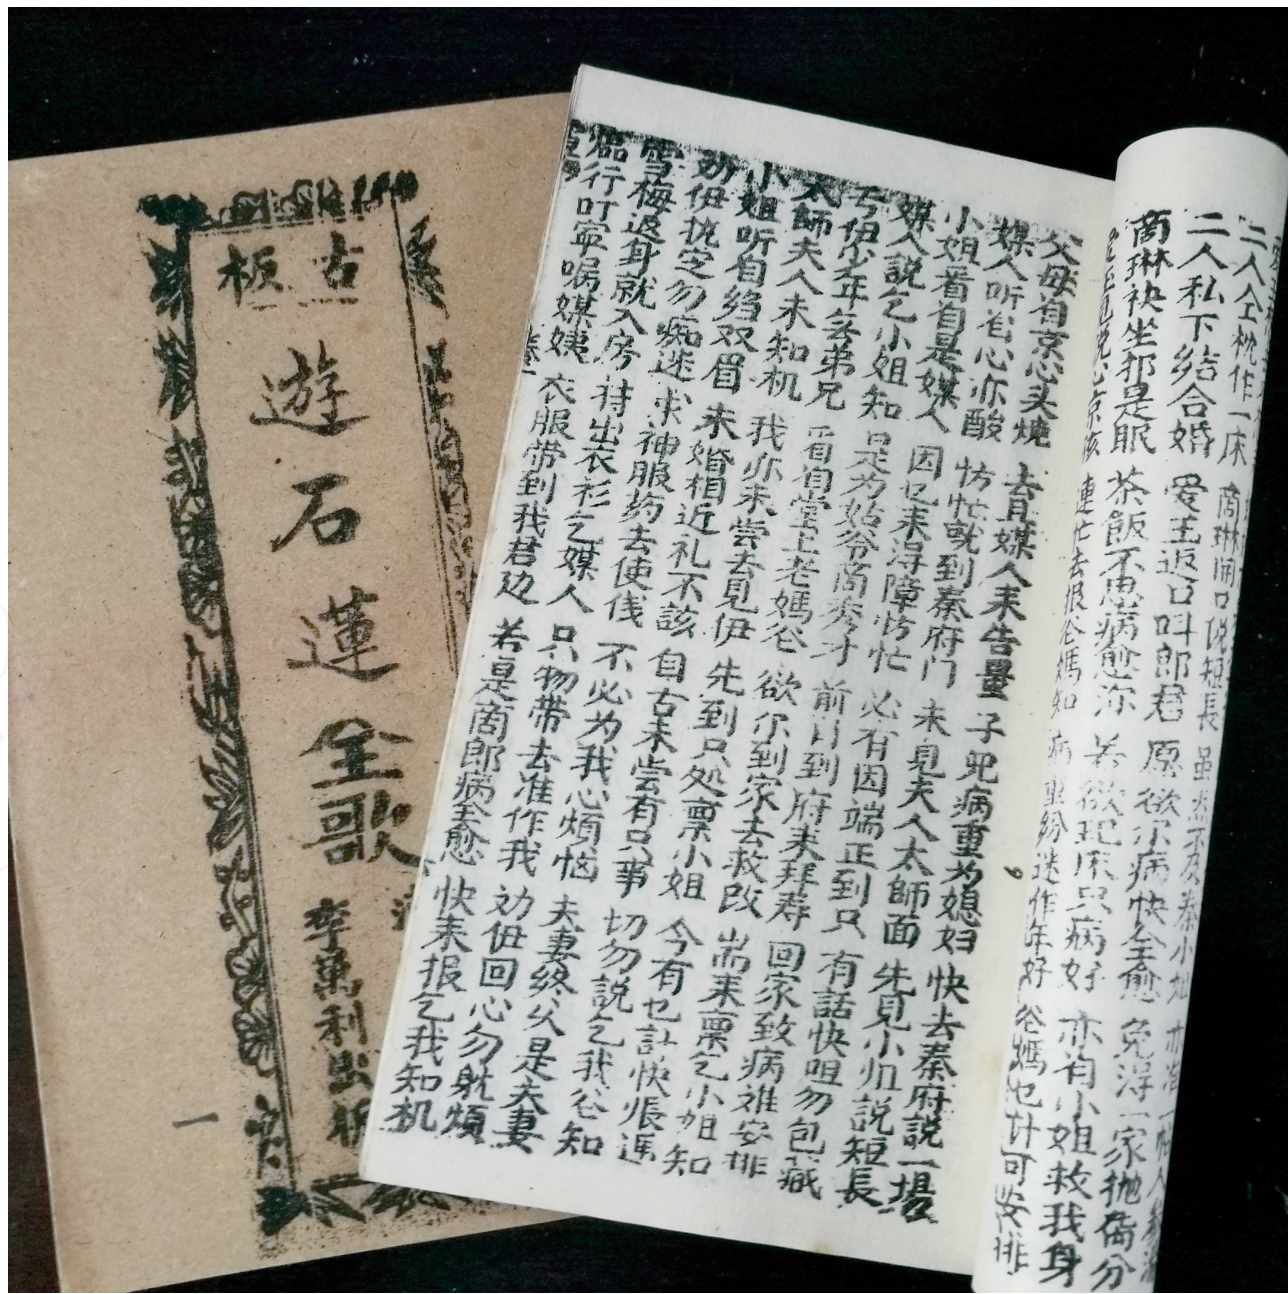 二人仝枕作一床 商琳開口说短長 虽然不及秦小姐
二人私下结合婚 爱玉返口叫郎君 愿欲尔病快全愈 免淂一家抛离分
商琳袂坐那是眠 茶飯不思病愈添 若欲 床只病好 亦肯小姐救我身
連忙去报爸媽知 病重紛迷作年好 爸媽乜计可安排
父母肯京心头燒 去肓媒人来告量 子児病重为媳妇 快去秦府說一場
媒人听肯心亦酸 彷忙就到秦府门 未見夫人太師面 先見小姐說短長
小姐看肯是媒人 因乜来淂障彷忙 必有因端正到只 有話快呾勿包藏
媒人說乞小姐知 是为姑爷商秀才 前日到府来拜寿 回家致病难安排
亏伊少年无弟兄 看肯堂上老媽爸 欲尔到家去救改 耑来禀乞小姐知
太師夫人未知机 我亦未尝去見伊 先到只处禀小姐 今有乜計快張遲
小姐听肯绉双眉 未婚相近礼不該 自古未尝有只事 切勿說乞我爸知
劝伊执定勿痴迷 求神服药去使伐 不必为我心煩恼 夫妻终久是夫妻
雪梅退身就入房 持出衣衫乞媒人 只物带去准作我 劝伊回心勿躭煩
临行叮寧嘱媒姨 衣服带到我君边 若是商郎病全愈 快来报乞我知机
卷一
古板
遊石蓮全歌
李萬利出板
一